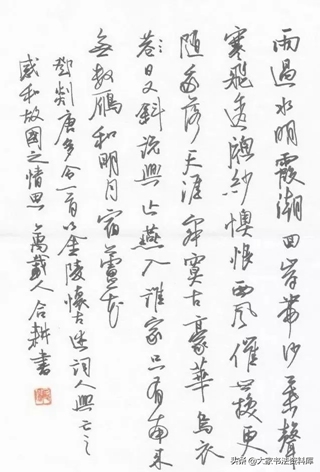 雨過水明霞潮回岸带沙葉聲
寒飛透窗紗懊恨西風催世換更
随我落天涯寂寞古豪華烏衣
巷日又斜说興亡燕入誰家只有南来
無数雁和明月宿蘆花
鄧剡唐多令一首以金陵懷古述詞人興亡之
感和故國之情思 萬載人合耕書
头条 @大家书法资料库